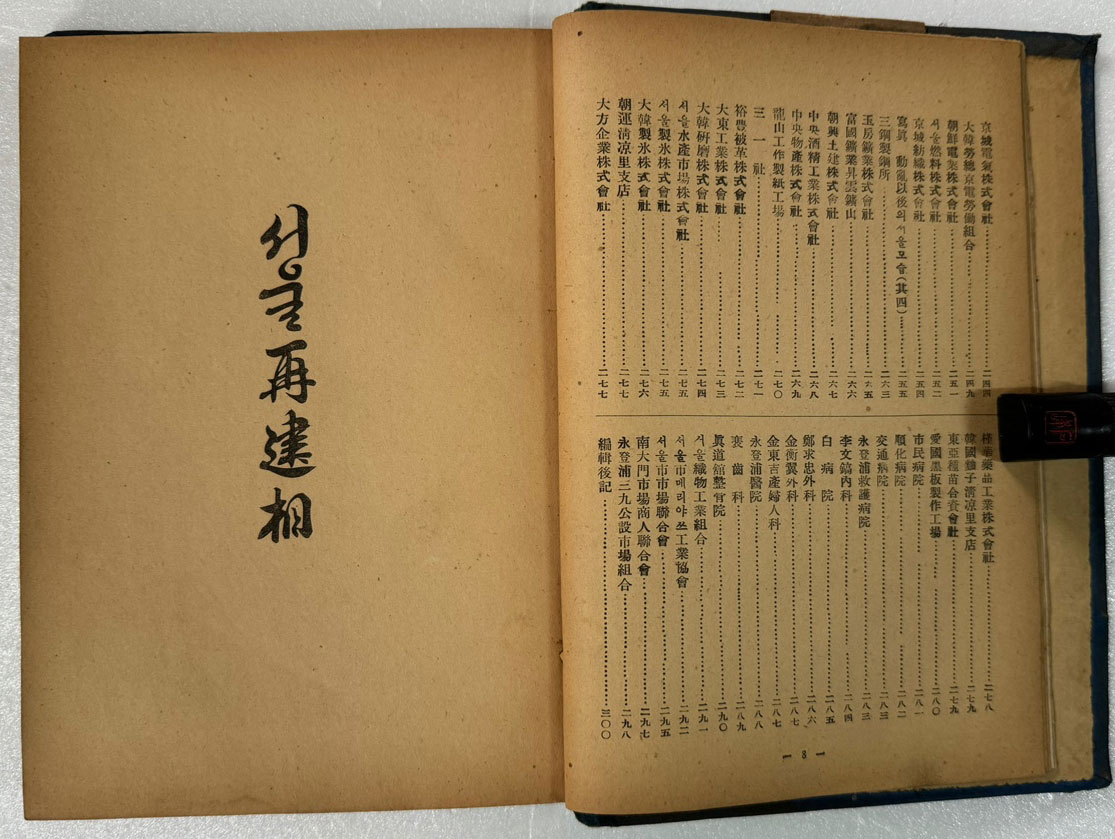 京城電氣株式會社 二四四
大韓勞總京電勞働組合 二四九
朝鮮電業株式會社 二五一
서울燃料株式會社 二五二
京城紡織株式會社 二五四
寫眞 動亂以後의서울모습(其四) 二五五
三鋼製鋼所 二六三
玉房鑛業株式會社 二六五
富國鑛業昇雲鑛山 二六六
朝興土建株式會社 二六七
中央酒精工業株式會社 二六八
中央物產株式會社 二六九
龍山工作製紙工場 二七〇
三一社 二七一
裕豐被革株式會社 二七二
大東工業株式會社 二七三
大韓硏磨株式會社 二七四
서울水產市場株式會社 二七五
서울製氷株式會社 二七五
大韓製氷株式會社 二七六
朝運淸凉里支店 二七七
大方企業株式會社 二七七
藥品工業株式會社 二七八
韓國 子淸凉里支店 二七九
東亞種苗合資會社 二七九
愛國黑板製作工場 二八〇
市民病院 二八一
順化病院 二八二
交通病院 二八三
永登浦救護病院 二八三
李文鎬內科 二八四
白病院 二八五
鄭求忠外科 二八六
金衡翼外科 二八七
金東吉產婦人科 二八七
永登浦醫院 二八八
裵齒科 二八九
眞道舘整骨院 二九〇
서울織物工業組合 二九一
서울市메리야쓰工業協會 二九二
서울市市場聯合會 二九五
南大門市場商人聯合會 二九七
永登浦三九公設市場組合 二九八
編輯後記 三〇〇
— 8 —
서울再建相